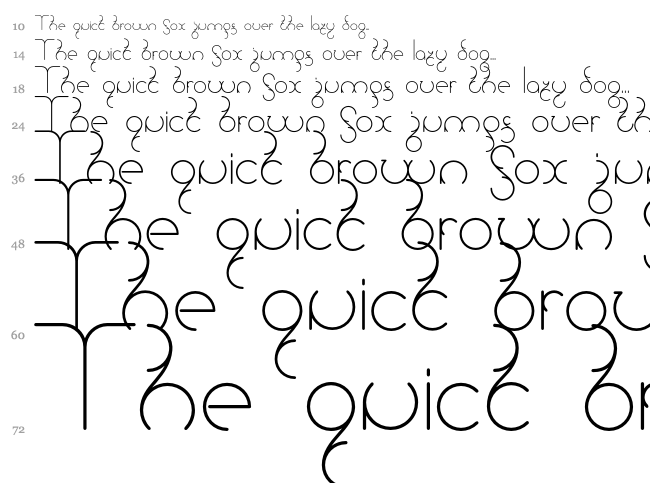 10 The quick brown fox jumps over the lazy dog...
14 The quick brown fox jumps over the lazy dog...
18 The quick brown fox jumps over the lazy dog...
24 The quick brown fox jumps over th
36 The quick brown fox ju
48 The quick brown
60 The quick brow
72 The quick br